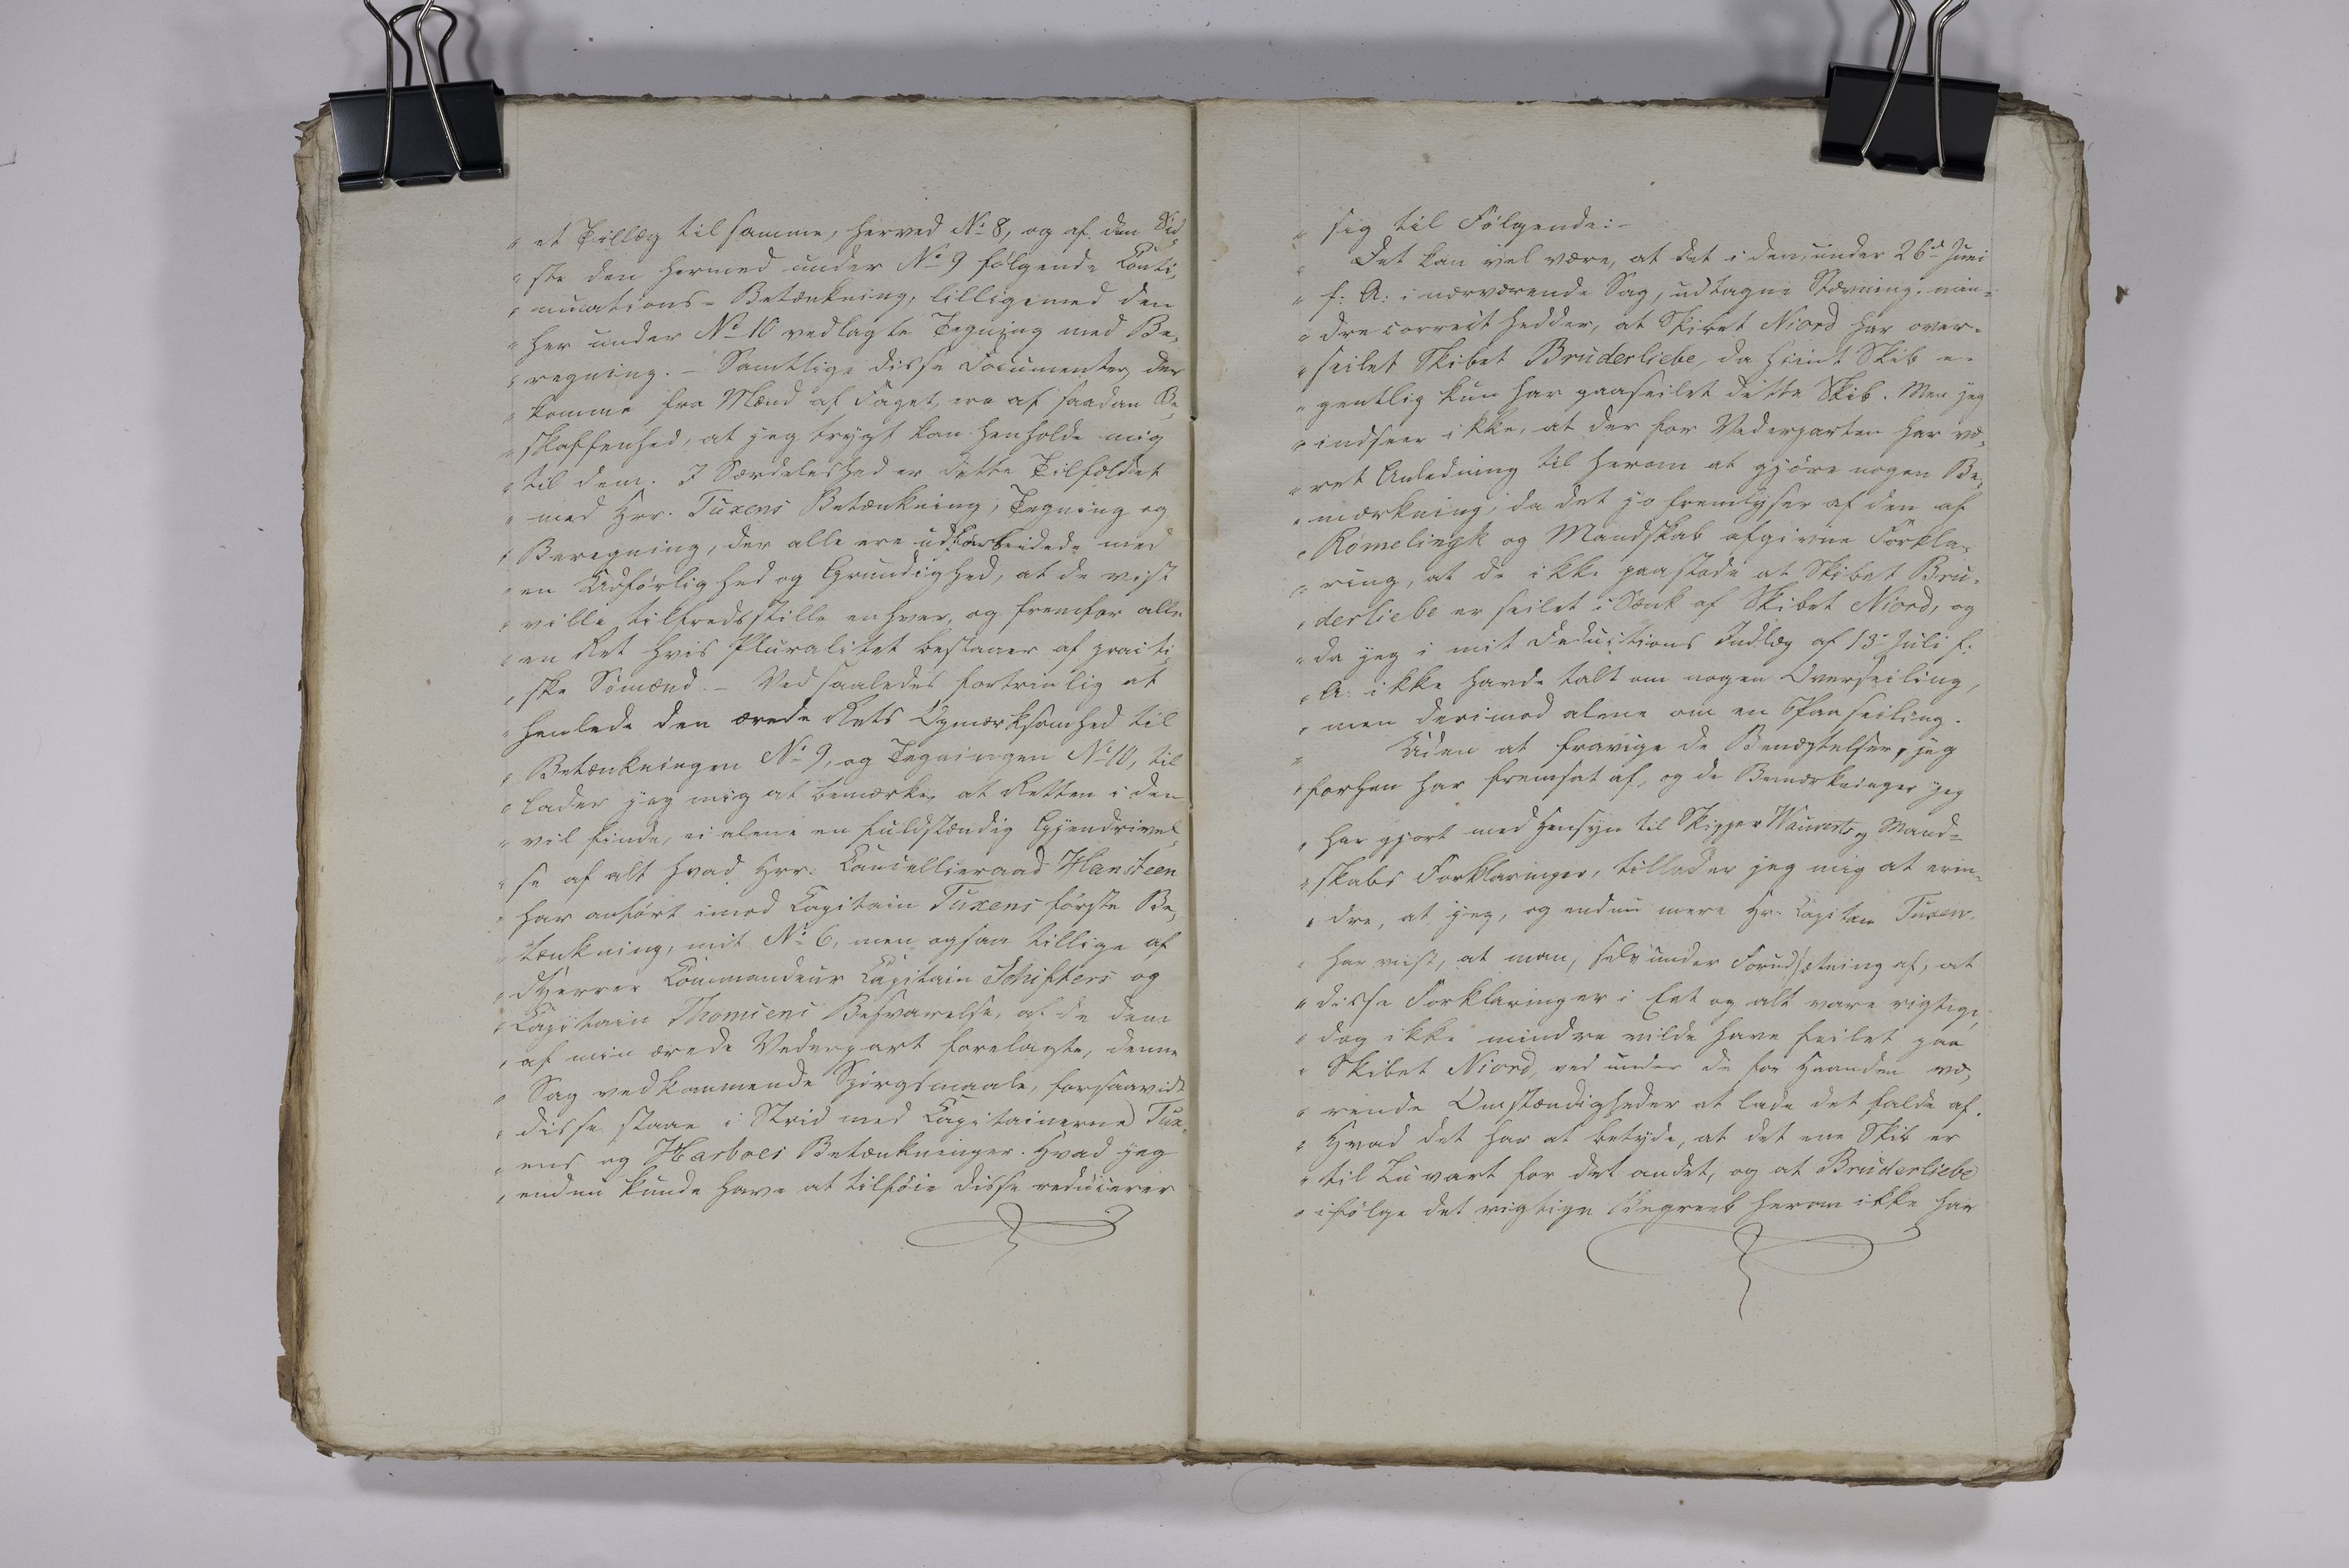 " et Tillæg til samme, herved No 8, og af den Sid„
" ste den hermed under No 9 følgende Conti„
" nuations-Betænkning, tilligemed den
" her under No 10 vedlagte Tegning med Be„
" regning. – Samtlige disse Documenter, der
" komme fra Mænd af Faget, ere af saadan Be„
" skaffenhed, at jeg trygt kan henholde mig
" til dem. I Særdeleshed er dette Tilfældet
" med Hrr. Tuxens Betænkning, Tegning og
" Beregning, der alle ere udarbeidede med
" en Udførlighed og Grundighed, at de vist
" ville tilfredsstille enhver, og fremfor alle
" en Ret hvis Pluralitet bestaaer af practi„
" ske Sömænd. – Ved saaledes fortrinlig at
" henlede den ærede Rets Opmærksomhed til
" Betænkningen No 9, og Tegningen No 10, til
" lader jeg mig at bemærke, at Retten i den
" vil finde, ei alene en fuldstændig Gjendrivel„
" se af alt hvad Hrr. Cancelliraad Hansteen
" har anført imod Capitain Tuxens første Be„
" tænkning, mit No 6, men ogsaa tillige af
" DHerrer Commandeur Capitain Schifters og
" Capitain Thomsens Besvarelse, af de dem
" af min ærede Vederpart forelagte, denne
" Sag vedkommende Spørgsmaale, forsaavidt
" disse staae i Strid med Capitainerne Tux„
" ens og Harboes Betænkninger. Hvad jeg
" endnu kunde have at tilföie disse reducerer
" sig til Følgende:–
" Det kan vel være, at det i den, under 26d Juni
" f: A: i nærværende Sag, udtagne Stævning, min„
" dre correct hedder, at Skibet Niord har over„
" seilet Skibet Bruderliebe, da hiint Skib e„
" gentlig kun har paaseilet dette Skib. Men jeg
" indseer ikke, at der for Vederparten har væ„
" ret Anledning til herom at gjöre nogen Be„
" mærkning, da det jo fremlyser af den af
" Römelingk og Mandskab afgivne Forkla„
" ring, at de ikke paastode at Skibet Bru„
" derliebe er seilet i Sænk af Skibet Niord, og
" da jeg i mit Deductions Indlæg af 13d Juli f:
" A: ikke havde talt om nogen Overseiling,
" men derimod alene om en Paaseiling.
" Uden at fravige de Benægtelser, jeg
" forhen har fremsat af, og de Bemærkninger jeg
" har gjort med Hensyn til Skipper Wauverts og Mand„
" skabs Forklaringer, tillader jeg mig at erin„
" dre, at jeg, og endnu mere Hr. Capitain Tuxen
" har viist, at man, selv under Forudsætning af, at
" disse Forklaringer i Eet og alt vare rigtige,
" dog ikke mindre vilde have feilet paa
" Skibet Niord, ved under de for Haanden væ„
" rende Omstændigheder at lade det falde af.
" Hvad det har at betyde, at det ene Skib er
" til Luvart for det andet, og at Bruderliebe
" ifölge det rigtige Begreb herom ikke har